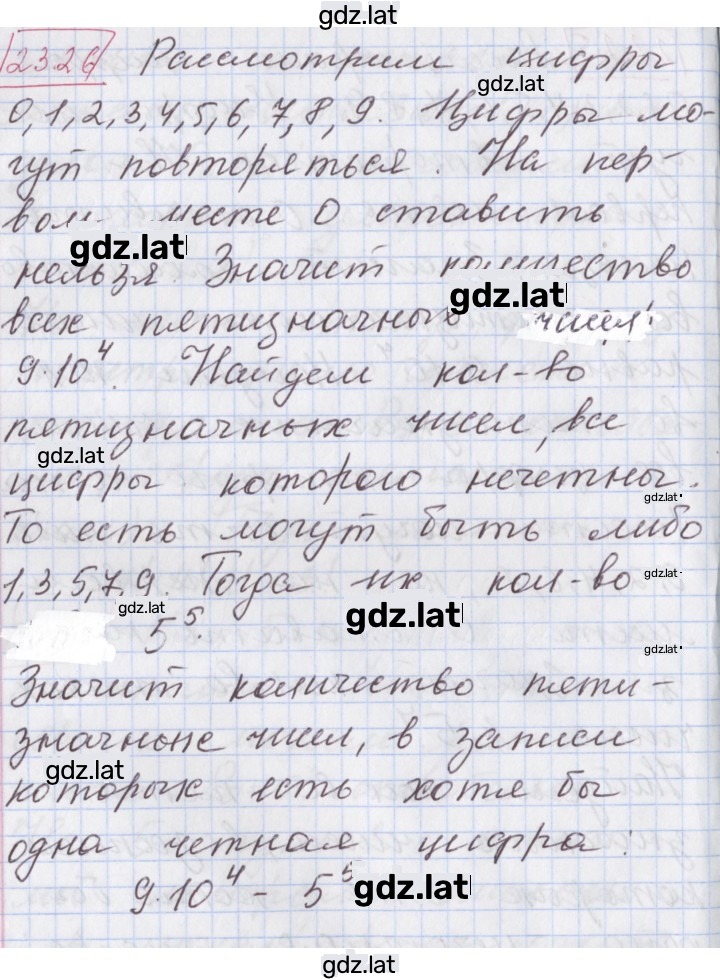 gdz.lat
2326 Рассмотрим цифры
gdz.lat
0,1,2,3,4,5,6,7,8,9. Цифры мо-
гут повторяться. На пер-
вом месте 0 ставить
gdz.lat
нельзя. Значит количество
gdz.lat
всех пятизначных чисел:
9·10⁴. Найдем кол-во
пятизначных чисел, все
gdz.lat
цифры которого нечетны.
gdz.lat
То есть могут быть либо
1,3,5,7,9. Тогда их кол-во
gdz.lat
gdz.lat
gdz.lat
5⁵.
gdz.lat
Значит количество пяти-
значные чисел, в записи
gdz.lat
которых есть хотя бы
одна четная цифра:
9·10⁴ - 5⁵
gdz.lat
gdz.lat